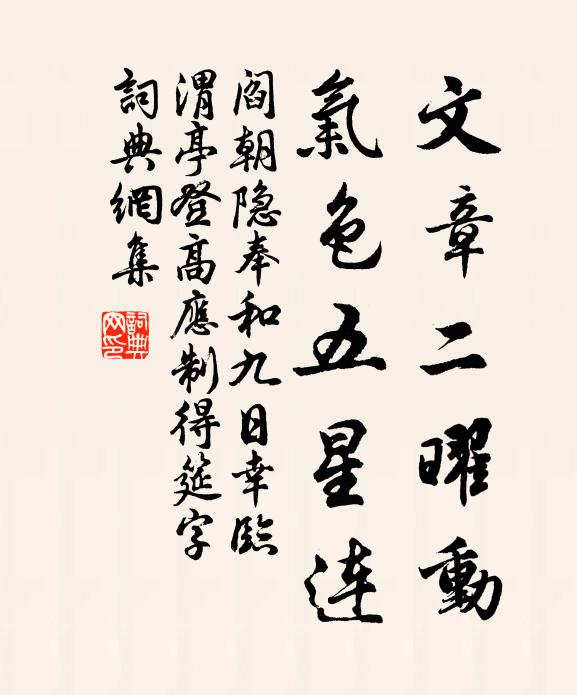 文章二曜動
氣色五星連
閻朝隐奉和九日幸臨
渭亭登高應制得筵字
詞典網集
詞典
网印